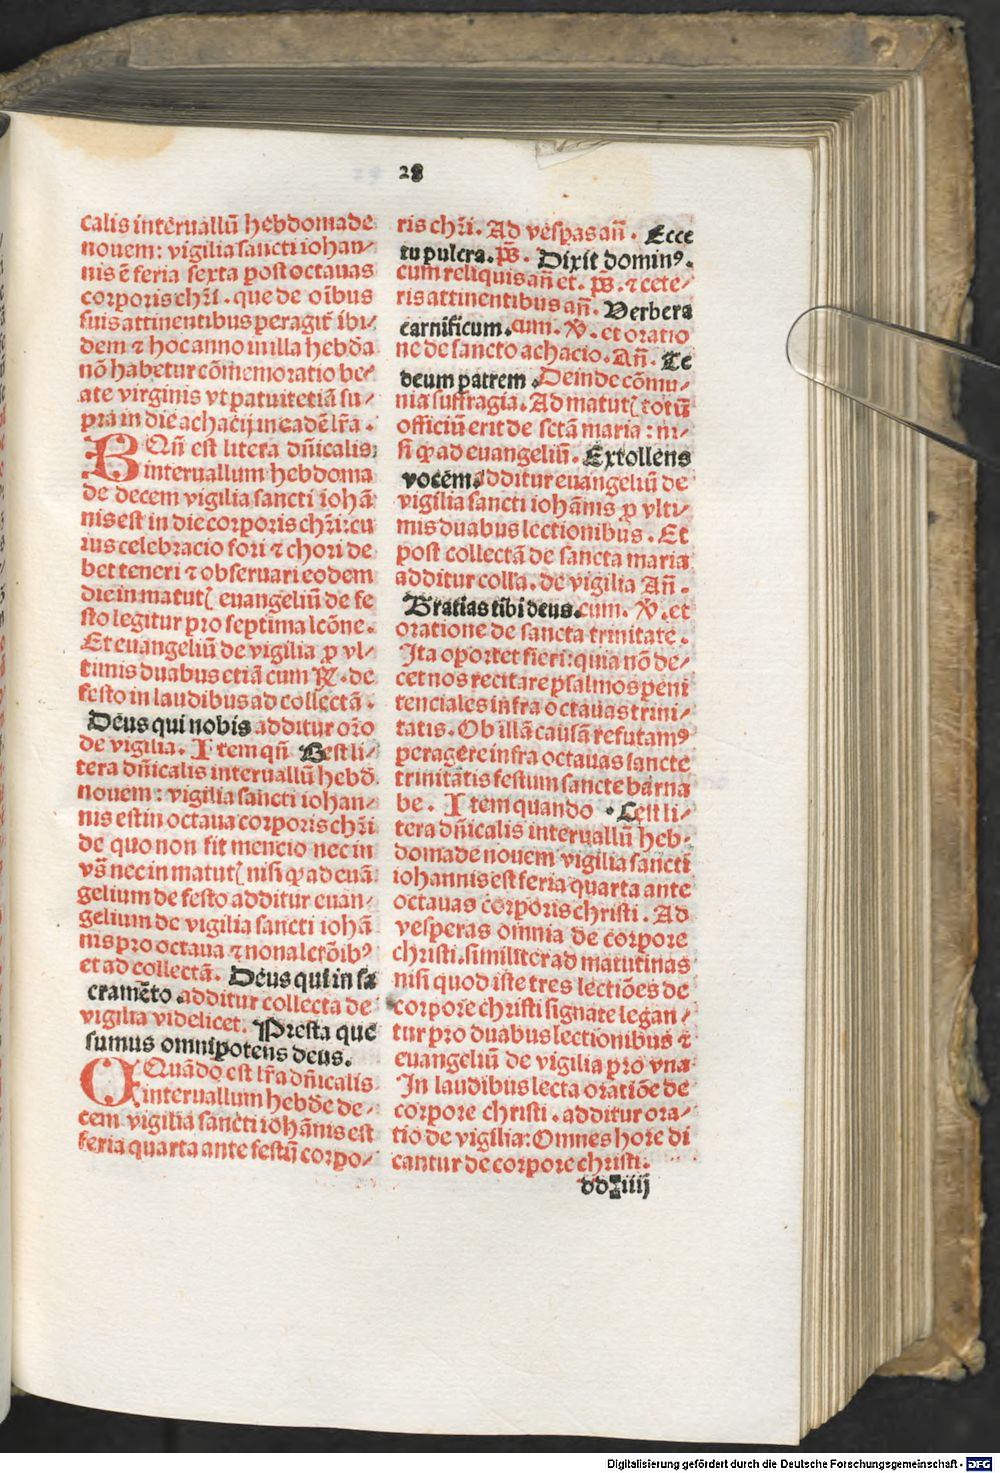 28
calis interuallū hebdomade
nouem: vigilia sancti iohan⸗
nis ē feria sexta post octauas
corporis chr̄i . que de oībus
suis attinentibus peragit̄ ibi⸗
dem ⁊ hoc anno in illa hebda
nō habetur cōmemoratio be⸗
ate virginis vt patuit etiā su⸗
pra in die achacij in eadē lr̄a .
BQn̄ est litera dn̄icalis
interuallum hebdoma
de decem vigilia sancti iohā
nis est in die corporis chr̄i: cu
ius celebracio fori ⁊ chori de
bet teneri ⁊ obseruari eodem
die in matut̄ euangeliū de fe
sto legitur pro septima lcōne .
Et euangeliū de vigilia ꝓ vl⸗
timis duabus etiā cum R̄ . de
festo in laudibus ad collectā .
Deus qui nobis additur or̄o
de vigilia . Item qn̄ B est li⸗
tera dn̄icalis interuallū hebd̄
nouem : vigilia sancti iohan⸗
nis est in octaua corporis chr̄i
de quo non fit mencio nec in
vs̄ nec in matut̄ nisi ꝙ ad euā
gelium de festo additur euan⸗
gelium de vigilia sancti iohā
nis pro octaua ⁊ nona lectōibꝰ
et ad collectā . Deus qui in sa
cramēto . additur collecta de
vigilia videlicet . Presta que
sumus omnipotens deus .
OQuādo est lr̄a dn̄icalis
interuallum hebd̄e de⸗
cem vigilia sancti iohānis est
feria quarta ante festū corpo⸗
ris chr̄i . Ad vesperas an̄ . Ecce
tu pulcra . ps̄ . Dixit dominꝰ .
cum reliquis an̄ et . ps̄ . ⁊ cete⸗
ris attinentibus an̄ . Verbera
carnificum . cum . V̄ . et oratio
ne de sancto achacio . An̄ . Te
deum patrem . Deinde cōmu⸗
nia suffragia . Ad matut̄ totū
officiū erit de sctā maria : ni⸗
si ꝙ ad euangeliū . Extollens
vocem . additur euangeliū de
vigilia sancti iohānis ꝓ vlti⸗
mis duabus lectionibus . Et
post collectā de sancta maria
additur colla . de vigilia An̄ .
Gratias tibi deus . cum . V̄ . et
oratione de sancta trinitate .
Ita oportet fieri : quia nō de⸗
cet nos recitare psalmos peni
tenciales infra octauas trini⸗
tatis . Ob illā causam refutamꝰ
peragere infra octauas sancte
trinitatis festum sancte barna
be . Item quando . C est li⸗
tera dn̄icalis interuallū heb⸗
domade nouem vigilia sancti
iohannis est feria quarta ante
octauas corporis christi . Ad
vesperas omnia de corpore
christi . similiter ad matutinas
nisi quod iste tres lectiōes de
corpore christi signate legan⸗
tur pro duabus lectionibus ⁊
euangeliū de vigilia pro vna
In laudibus lecta oratiōe de
corpore christi . additur ora⸗
tio de vigilia : Omnes hore di
cantur de corpore christi .
dd iiij
Digitalisierung gefördert durch die Deutsche Forschungsgemeinschaft - DFG